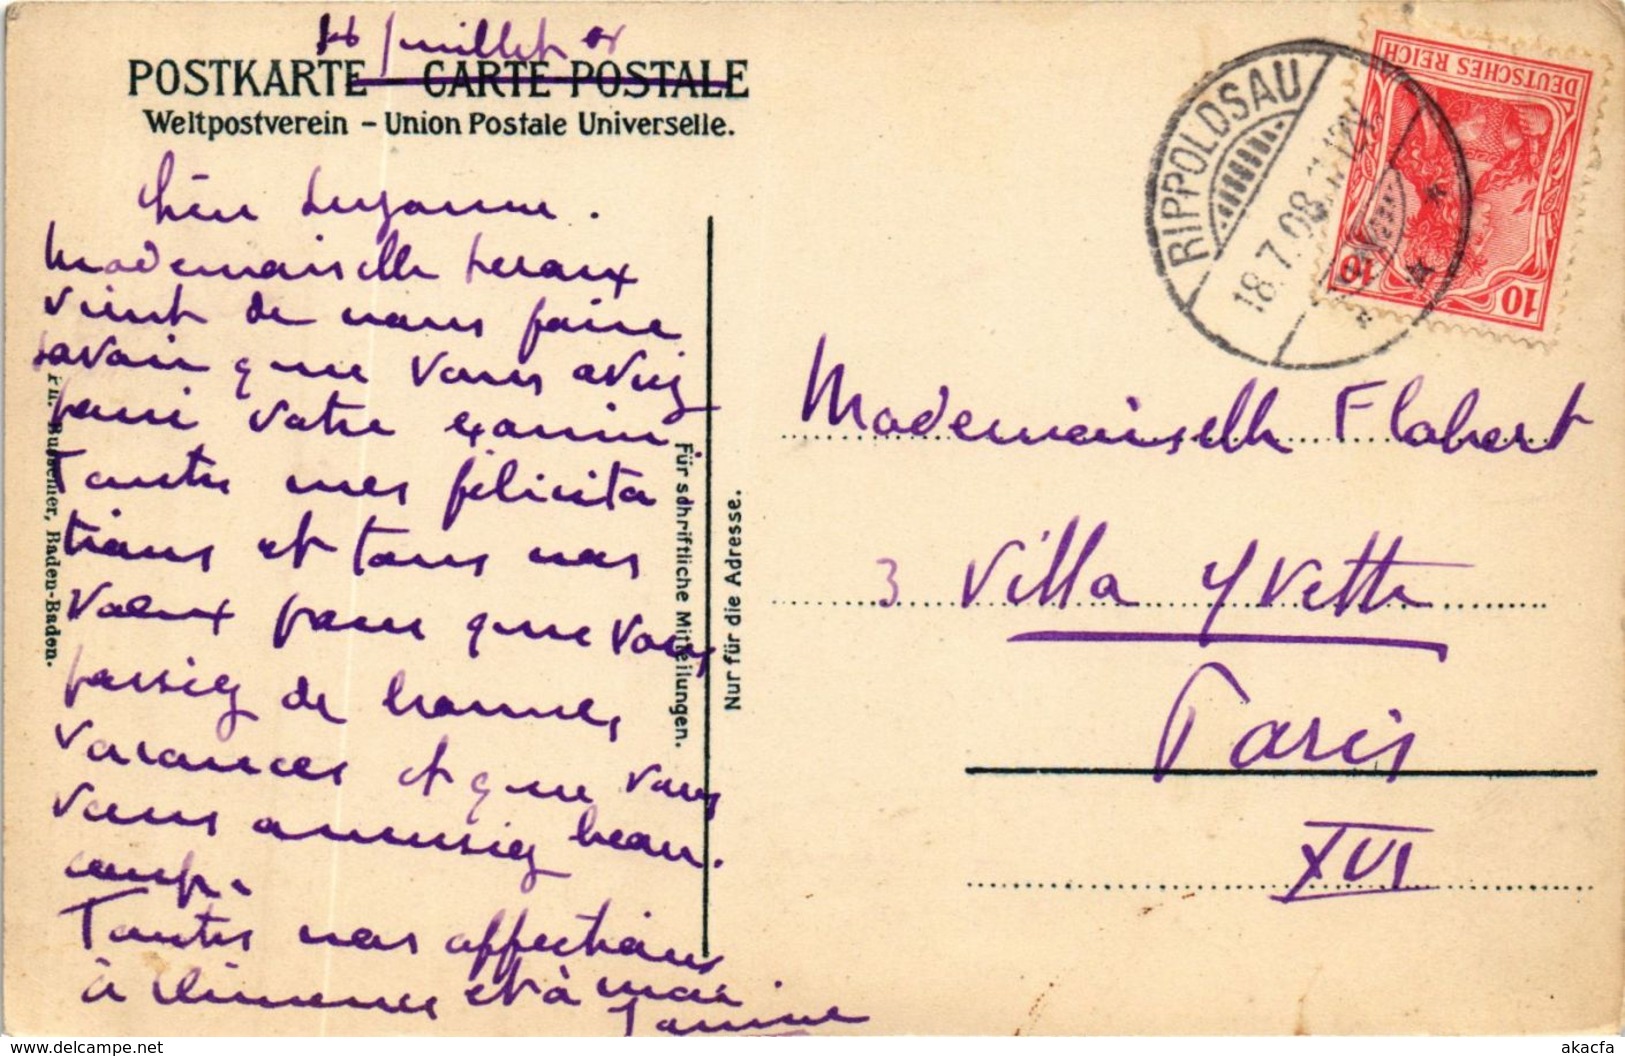 Juillet 08
POSTKARTE - CARTE POSTALE
Weltpostverein - Union Postale Universelle.
Chère Suzanne.
Mademoiselle
vient de nous faire
savoir que vous aviez
passé votre examen
Toutes mes félicita
tions et tous nos
vœux pour que vous
passiez de bonnes
vacances et que vous
vous amusiez beau.
coup.
Toutes nos affections
à Clémence et à moi
Janine
Ph. Bussemer, Baden-Baden.
Für schriftliche Mitteilungen.
Nur für die Adresse.
RIPPOLDSAU
18.7.08
DEUTSCHES REICH
10 10
Mademoiselle Flobert
3 Villa Yvette
Paris
XVI
akacfa